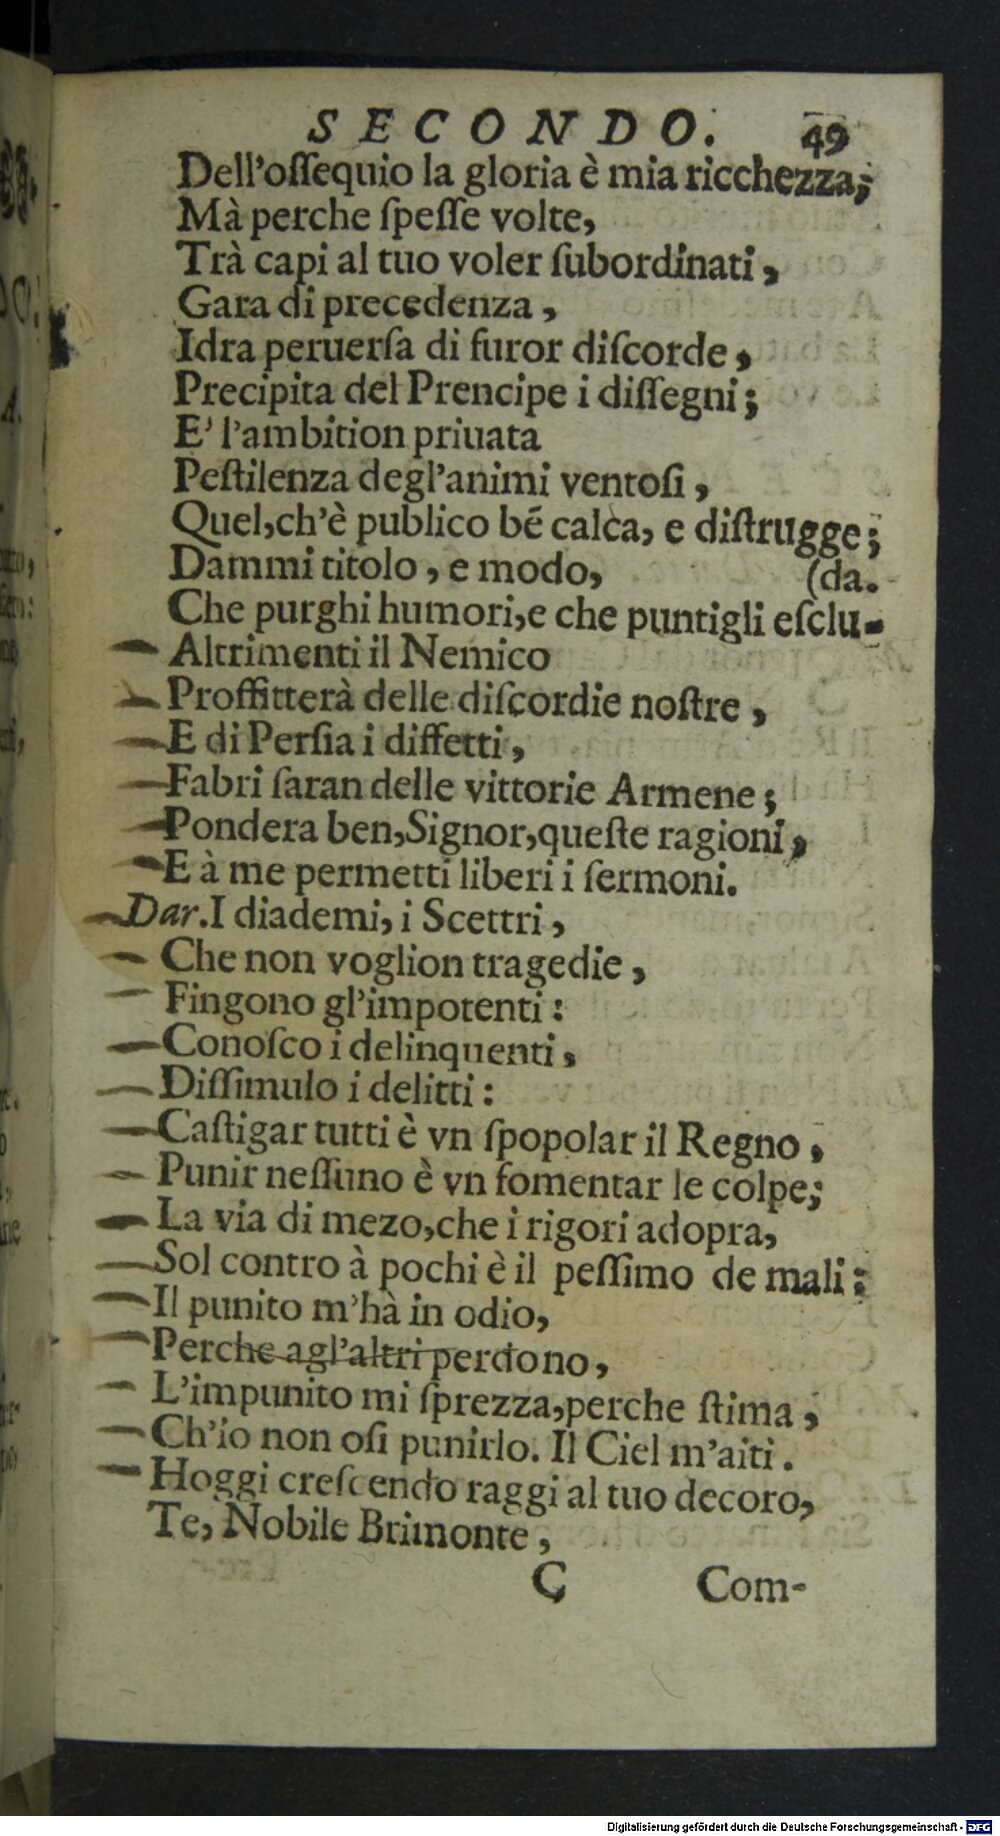 SECONDO. 49
Dell'oſſequio la gloria è mia ricchezza;
Mà perche ſpeſſe volte,
Trà capi al tuo voler ſubordinati,
Gara di precedenza,
Idra peruerſa di furor diſcorde,
Precipita del Prencipe i diſſegni;
E' l'ambition priuata
Peſtilenza degl'animi ventoſi,
Quel, ch'è publico bẽ calca, e diſtrugge;
Dammi titolo, e modo, (da.
Che purghi humori, e che puntigli eſclu-
Altrimenti il Nemico
Proffitterà delle diſcordie noſtre,
E di Perſia i diffetti,
Fabri ſaran delle vittorie Armene;
Pondera ben, Signor, queſte ragioni,
E à me permetti liberi i ſermoni.
Dar. I diademi, i Scettri,
Che non voglion tragedie,
Fingono gl'impotenti:
Conoſco i delinquenti,
Diſſimulo i delitti:
Caſtigar tutti è vn ſpopolar il Regno,
Punir neſſuno è vn fomentar le colpe;
La via di mezo, che i rigori adopra,
Sol contro à pochi è il peſſimo de mali:
Il punito m'hà in odio,
Perche agl'altri perdono,
L'impunito mi ſprezza, perche ſtima,
Ch'io non oſi punirlo. Il Ciel m'aiti.
Hoggi creſcendo raggi al tuo decoro,
Te, Nobile Brimonte,
C Com-
Digitalisierung gefördert durch die Deutsche Forschungsgemeinschaft - DFG